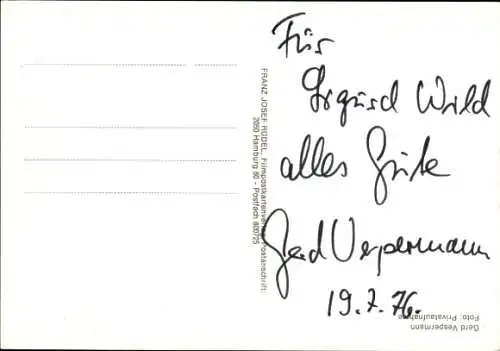 Für
Irgard Wild
alles Gute
Gerd Vespermann
19.7.76.
FRANZ JOSEF RÜDEL, Filmpostkartenverlag, Postanschrift:
2000 Hamburg 80 - Postfach 800725
Gerd Vespermann
Foto: Privataufnahme